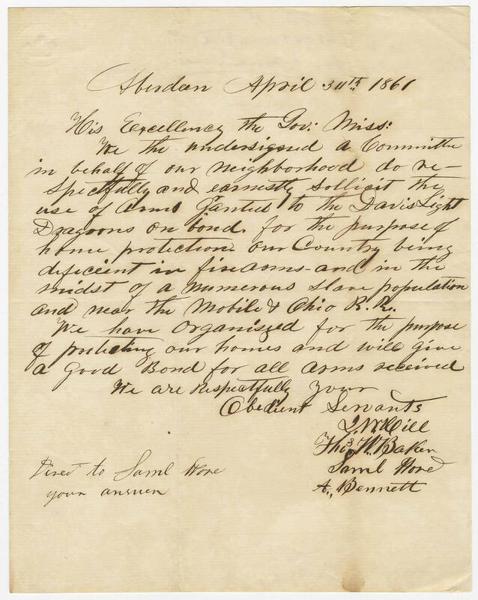 Aberdeen April 30th 1861
His Excellency the Gov: Miss:
We the undersigned a Committee
in behalf of our neighborhood do re-
spectfully and earnestly sollicit the
use of Arms Granted to the Davis Light
Dragoons on bond. for the purpose of
home protection our Country being
deficient in firearms and in the
midst of a numerous slave population
and near the Mobile & Ohio R.R.
We have organized for the purpose
of protecting our homes and will give
a Good Bond for all arms received
We are respectfully your
Obedient Servants
Hill
Thos W. Baker
Saml
A. Bennett
Direct to Saml
your answer